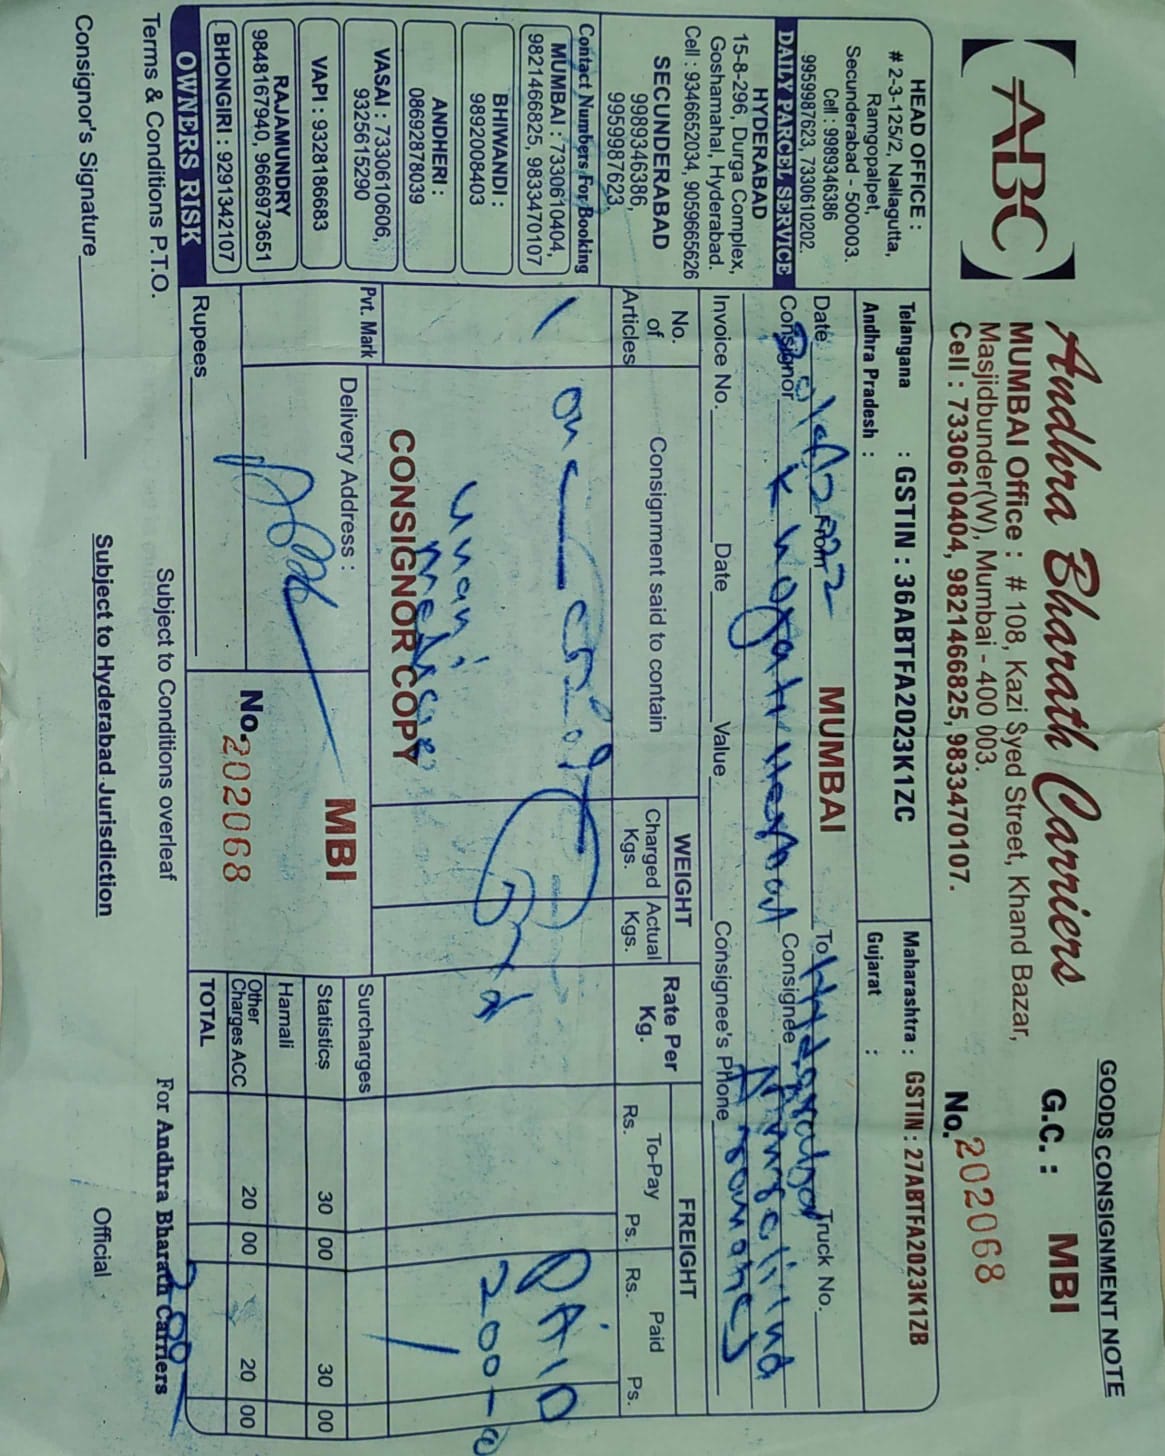 GOODS CONSIGNMENT NOTE
ABC
Andhra Bharath Carriers
G.C. : MBI
MUMBAI Office : # 108, Kazi Syed Street, Khand Bazar,
Masjidbunder(W), Mumbai - 400 003.
Cell : 7330610404, 9821466825, 9833470107.
No. 202068
HEAD OFFICE :
# 2-3-125/2, Nallagutta,
Ramgopalpet,
Secunderabad - 500003.
Cell : 9989346386
9959987623, 7330610202.
DAILY PARCEL SERVICE
HYDERABAD
15-8-296, Durga Complex,
Goshamahal, Hyderabad.
Cell : 9346652034, 9059665626
SECUNDERABAD
9989346386,
9959987623,
Contact Numbers For Booking
MUMBAI : 7330610404,
9821466825, 9833470107
BHIWANDI :
9892008403
ANDHERI :
08692878039
VASAI : 7330610606,
9325615290
VAPI : 9328186683
RAJAMUNDRY
9848167940, 9666973651
BHONGIRI : 9291342107
OWNERS RISK
Telangana : GSTIN : 36ABTFA2023K1ZC
Maharashtra : GSTIN : 27ABTFA2023K1ZB
Andhra Pradesh :
Gujarat :
Date From MUMBAI To Truck No.
Consignor Consignee
Invoice No. Date Value Consignee's Phone
No. of Articles
Consignment said to contain
WEIGHT
Charged Kgs.
Actual Kgs.
Rate Per Kg.
FREIGHT
To-Pay
Rs. Ps.
Paid
Rs. Ps.
1
PAID
200-0
CONSIGNOR COPY
Pvt. Mark
Delivery Address :
MBI
No. 202068
Rupees
Surcharges
Statistics 30 00 30 00
Hamali
Other Charges ACC 20 00 20 00
TOTAL 200
Terms & Conditions P.T.O.
Subject to Conditions overleaf
For Andhra Bharath Carriers
Consignor's Signature
Subject to Hyderabad Jurisdiction
Official